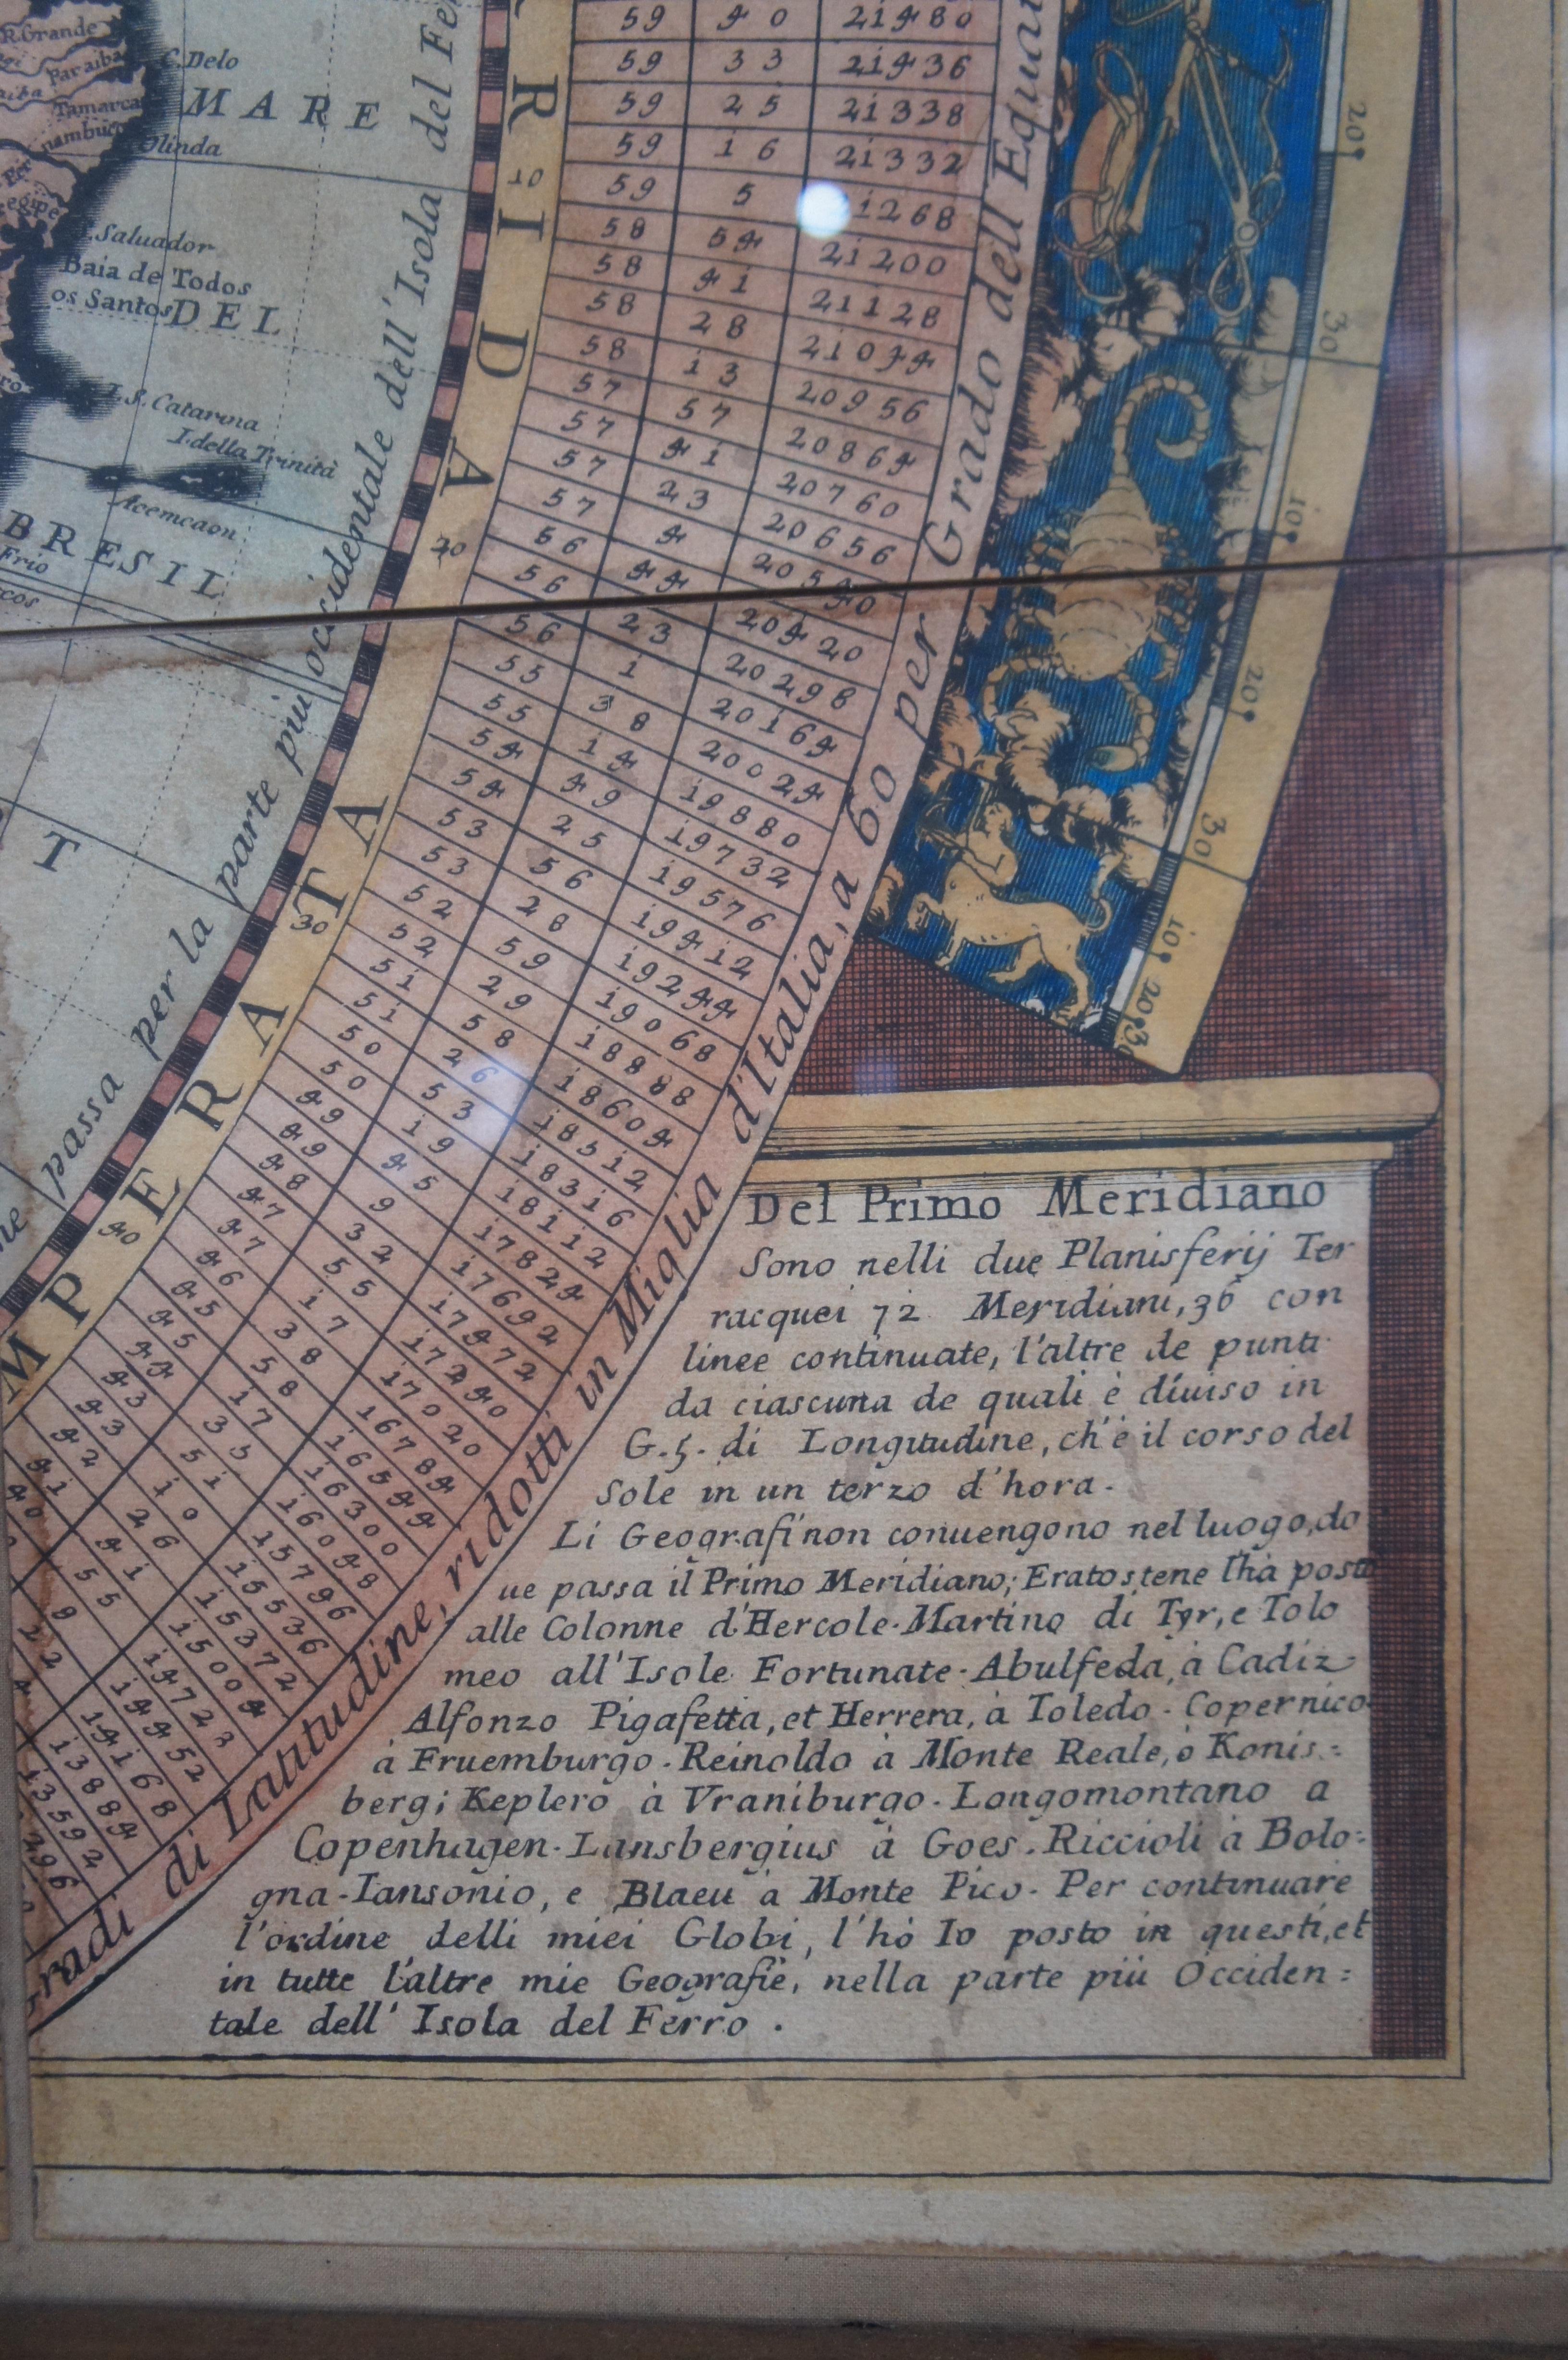 R. Grande
Paraiba
Tamarca
nambuco
C. Delo
MARE
Olinda
Saluador
Baia de Todos
os Santos
DEL
I. S. Catarina
I. della Trinità
Acemcaon
BRESIL
Frio
T
passa per la parte più occidentale dell' Isola del Fer
RIDA
TATA
MPERATA
10
20
30
40
59 40 21480
59 33 21436
59 25 21338
59 16 21332
59 5 1268
58 54 21200
58 41 21128
58 28 21044
58 13 20956
57 57 20864
57 41 20760
57 23 20656
57 4 20540
56 44 20420
56 23 20298
56 1 20164
55 38 20024
55 14 19880
54 49 19732
54 25 19576
53 56 19412
53 28 19244
52 59 19068
52 29 18888
51 58 18604
51 26 18512
50 53 18316
50 19 18112
49 45 17824
49 9 17692
48 32 17472
47 55 17240
47 17 17020
46 38 16784
45 58 16544
45 17 16300
44 35 16048
43 51 15796
43 10 15536
42 26 15372
41 41 15004
40 55 14723
9 14452
22 14168
13884
13592
296
radi di Latitudine, ridotti in Miglia d'Italia, a 60 per Grado dell Equa
20
30
10
20
30
10
20
30
Del Primo Meridiano
Sono nelli due Planisferij Ter
racquei 72 Meridiani, 36 con
linee continuate, l'altre de punti
da ciascuna de quali è diuiso in
G. 5. di Longitudine, ch'è il corso del
Sole in un terzo d'hora.
Li Geografi non conuengono nel luogo, do
ue passa il Primo Meridiano; Eratostene l'hà posto
alle Colonne d'Hercole. Martino di Tyr, e Tolo
meo all'Isole Fortunate. Abulfeda, à Cadiz
Alfonzo Pigafetta, et Herrera, à Toledo. Copernico
à Fruemburgo. Reinoldo à Monte Reale, ò Konis=
berg; Keplero à Vraniburgo. Longomontano a
Copenhagen. Lansbergius à Goes. Riccioli à Bolo=
gna. Iansonio, e Blaeu à Monte Pico. Per continuare
l'ordine delli miei Globi, l'hò Io posto in questi, et
in tutte l'altre mie Geografie, nella parte più Occiden=
tale dell' Isola del Ferro.